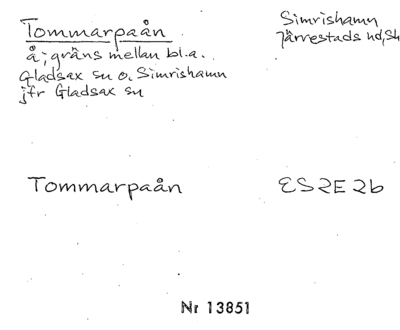 Tommarpaån
Simrishamn
Järrestads hd, Sk
å; gräns mellan bl.a.
Gladsax sn o. Simrishamn
jfr Gladsax sn
Tommarpaån
ES2E2b
Nr 13851